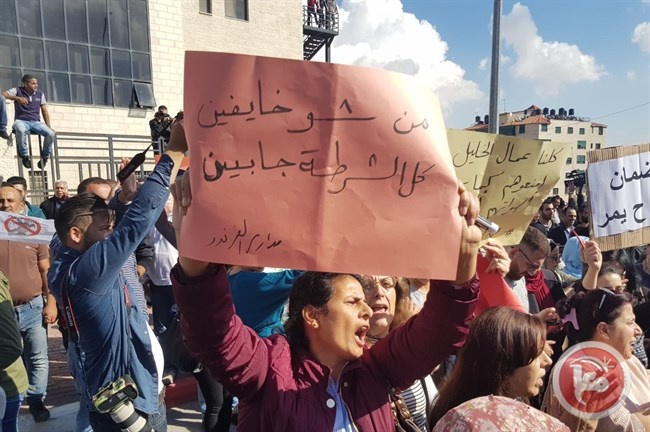 من شو خايفين
كل الشرطة جابين
مدارس الفرندز
كلنا عمال الخليل
ضمان
ح يمر